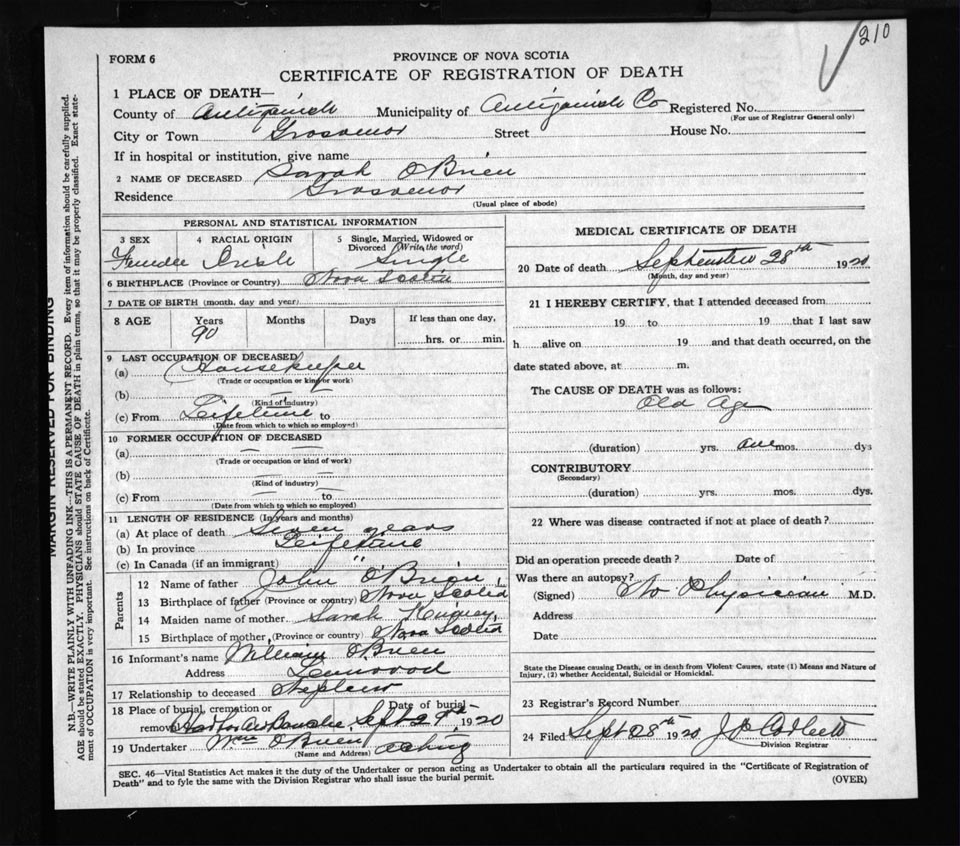 210
FORM 6
PROVINCE OF NOVA SCOTIA
CERTIFICATE OF REGISTRATION OF DEATH
1 PLACE OF DEATH—
County of Antigonish Municipality of Antigonish Co Registered No.
(For use of Registrar General only)
City or Town Grosvenor Street House No.
If in hospital or institution, give name
2 NAME OF DECEASED Sarah O'Brien
Residence Grosvenor
(Usual place of abode)
PERSONAL AND STATISTICAL INFORMATION
3 SEX 4 RACIAL ORIGIN 5 Single, Married, Widowed or
Divorced (Write the word)
Female Irish Single
6 BIRTHPLACE (Province or Country) Nova Scotia
7 DATE OF BIRTH (month, day and year)
8 AGE Years Months Days If less than one day,
90 hrs. or min.
9 LAST OCCUPATION OF DECEASED
(a) Housekeeper
(Trade or occupation or kind or work)
(b)
(Kind of industry)
(c) From Lifetime to
(Date from which to which so employed)
10 FORMER OCCUPATION OF DECEASED
(a)
(Trade or occupation or kind of work)
(b)
(Kind of industry)
(c) From to
(Date from which to which so employed)
11 LENGTH OF RESIDENCE (In years and months)
(a) At place of death Seven years
(b) In province Lifetime
(c) In Canada (if an immigrant) "
Parents
12 Name of father John O'Brien
13 Birthplace of father (Province or country) Nova Scotia
14 Maiden name of mother Sarah
15 Birthplace of mother (Province or country) Nova Scotia
16 Informant's name William O'Brien
Address Linwood
17 Relationship to deceased Nephew
18 Place of burial, cremation or Date of burial
removal Harbor Au Bouche Sept 29th 1920
19 Undertaker Wm O'Brien acting
(Name and Address)
MEDICAL CERTIFICATE OF DEATH
20 Date of death September 28th 1920
(Month, day and year)
21 I HEREBY CERTIFY, that I attended deceased from
19 to 19 that I last saw
h alive on 19 and that death occurred, on the
date stated above, at m.
The CAUSE OF DEATH was as follows:
Old Age
(duration) yrs. mos. dys
CONTRIBUTORY
(Secondary)
(duration) yrs. mos. dys.
22 Where was disease contracted if not at place of death?
Did an operation precede death? Date of
Was there an autopsy?
(Signed) No Physician M.D.
Address
Date
State the Disease causing Death, or in death from Violent Causes, state (1) Means and Nature of
Injury, (2) whether Accidental, Suicidal or Homicidal.
23 Registrar's Record Number
24 Filed Sept 28th 1920 J P Corbett
Division Registrar
SEC. 46—Vital Statistics Act makes it the duty of the Undertaker or person acting as Undertaker to obtain all the particulars required in the "Certificate of Registration of
Death" and to fyle the same with the Division Registrar who shall issue the burial permit. (OVER)
MARGIN RESERVED FOR BINDING
N.B.—WRITE PLAINLY WITH UNFADING INK—THIS IS A PERMANENT RECORD. Every item of information should be carefully supplied.
AGE should be stated EXACTLY. PHYSICIANS should STATE CAUSE OF DEATH in plain terms, so that it may be properly classified. Exact state-
ment of OCCUPATION is very important. See instructions on back of Certificate.